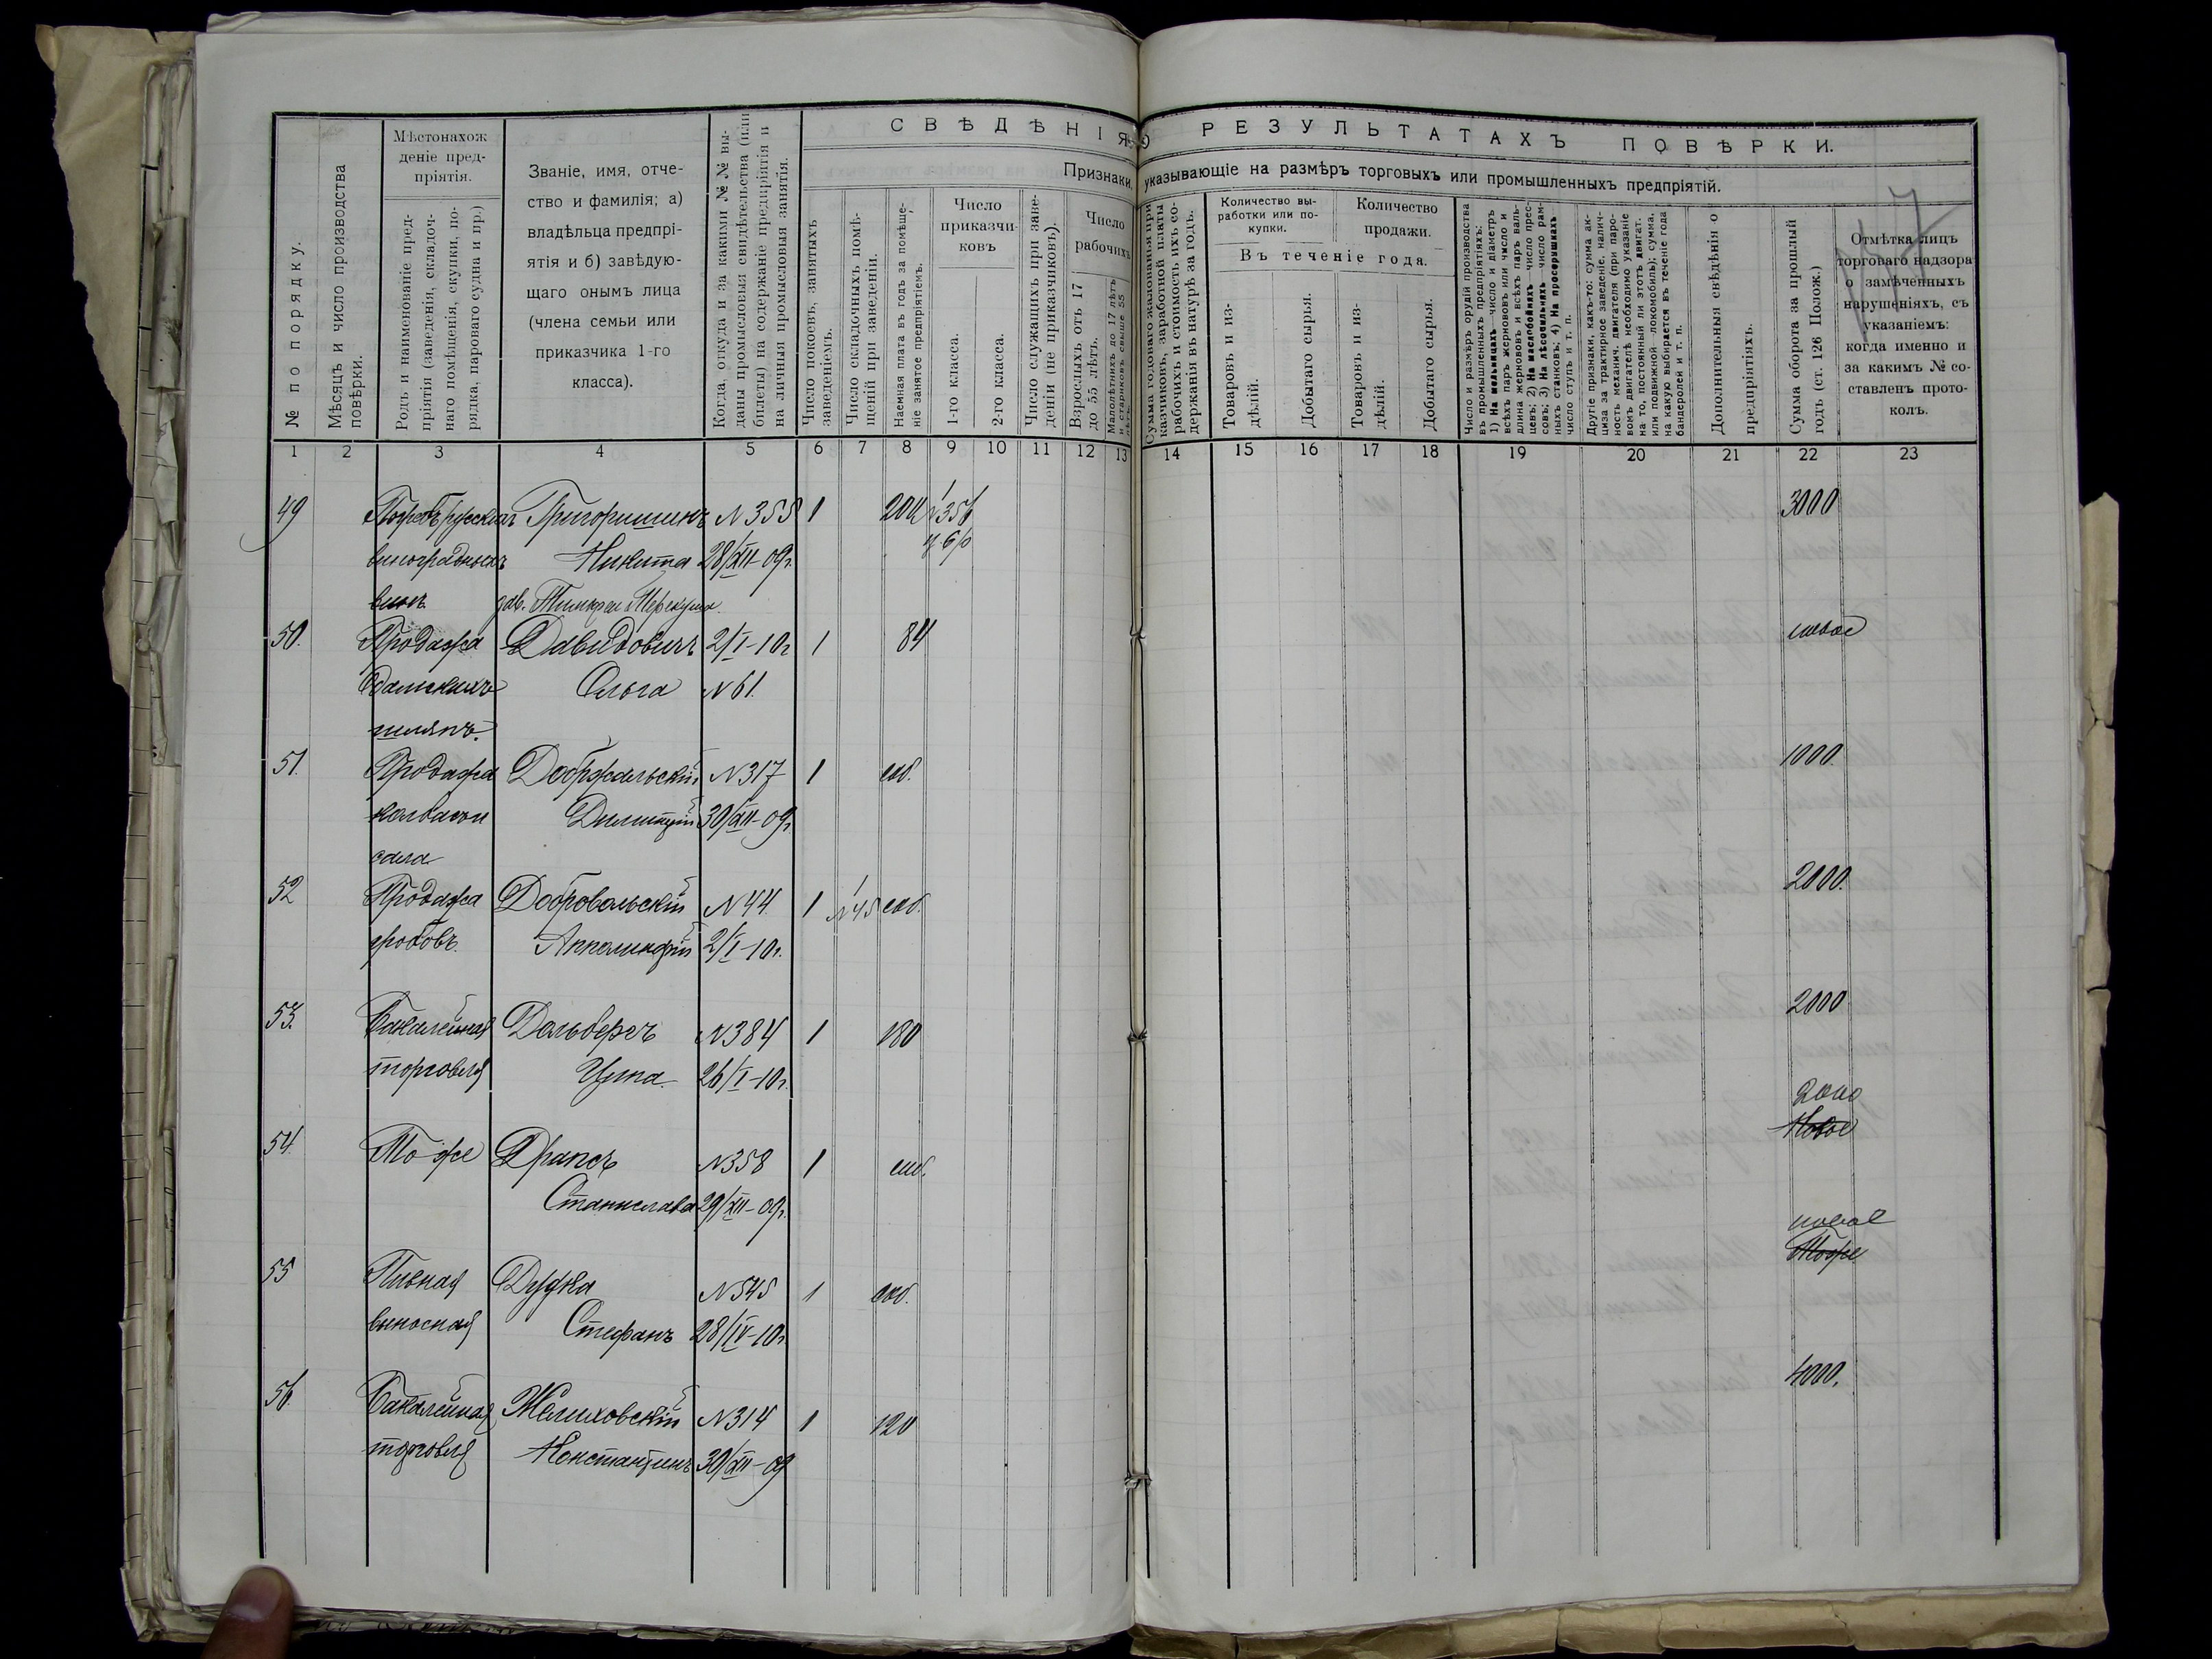 СВѢДѢНІЯ О РЕЗУЛЬТАТАХЪ ПОВѢРКИ.
Признаки, указывающіе на размѣръ торговыхъ или промышленныхъ предпріятій.
№ по порядку.
Мѣсяцъ и число производства
повѣрки.
Мѣстонахож
деніе пред-
пріятія.
Родъ и наименованіе пред-
пріятія (заведенія, складоч-
наго помѣщенія, скупки, по-
рядка, пароваго судна и пр.)
Званіе, имя, отче-
ство и фамилія; а)
владѣльца предпрі-
ятія и б) завѣдую-
щаго онымъ лица
(члена семьи или
приказчика 1-го
класса).
Когда, откуда и за какими № № вы-
даны промысловыя свидѣтельства (или
билеты) на содержаніе предпріятія и
на личныя промысловыя занятія.
Число покоевъ, занятыхъ
заведеніемъ.
Число складочныхъ помѣ-
щеній при заведеніи.
Наемная плата въ годъ за помѣще-
ніе занятое предпріятіемъ.
Число
приказчи-
ковъ
1-го класса.
2-го класса.
Число служащихъ при заве-
деніи (не приказчиковъ).
Число
рабочихъ
Взрослыхъ отъ 17
до 55 лѣтъ.
Малолѣтнихъ до 17 лѣтъ
и стариковъ свыше 55
лѣтъ.
Сумма годового жалованья при-
казчиковъ, заработной платы
рабочихъ и стоимость ихъ со-
держанія въ натурѣ за годъ.
Количество вы-
работки или по-
купки.
Количество
продажи.
Въ теченіе года.
Товаровъ и из-
дѣлій.
Добытаго сырья.
Товаровъ и из-
дѣлій.
Добытаго сырья.
Число и размѣръ орудій производства
въ промышленныхъ предпріятіяхъ:
1) На мельницахъ число и діаметръ
всѣхъ паръ жернововъ или число и
длина жернововъ и всѣхъ паръ валь-
цевъ; 2) На маслобойняхъ число прес-
совъ; 3) На лѣсопильняхъ число рам-
ныхъ станковъ; 4) На просорушняхъ
число ступъ и т. п.
Другіе признаки, какъ-то: сумма ак-
циза за трактирное заведеніе, налич-
ность механич. двигателя (при паро-
вомъ двигателѣ необходимо указаніе
на то, постоянный ли этотъ двигат.
или подвижной локомобиль); сумма,
на какую выбирается въ теченіе года
бандеролей и т. п.
Дополнительныя свѣдѣнія о
предпріятіяхъ.
Сумма оборота за прошлый
годъ (ст. 126 Полож.)
Отмѣтка лицъ
торговаго надзора
о замѣченныхъ
нарушеніяхъ, съ
указаніемъ:
когда именно и
за какимъ № со-
ставленъ прото-
колъ.
1 2 3 4 5 6 7 8 9 10 11 12 13 14 15 16 17 18 19 20 21 22 23
49 Погребъ русскихъ Григоришинъ №355 1 204 1 3000
виноградныхъ Никита 28/XII-09г.
винъ
50. Продажа Давидовичъ 2/I-10г 1 84 новое
дамскихъ Ольга №61.
шляпъ.
51. Продажа №317 1 соб. 1000.
колбасы 30/XII-09г.
сала
52 Продажа Добровольскій №44. 1 1 №45 соб. 2000.
гробовъ. 2/I-10г.
53. Бакалейная Дольбергъ №384 1 180 2000
торговля 26/I-10г.
2000
54. То же Драпсъ №358 1 соб. Новое
Станислава 29/XII-09г.
новое
55 Пивная Дужка №545 1 соб. Тоже
выносная Стефанъ 28/IV-10г
56. Бакалейная Желиховскій №314 1 120 4000.
торговля Константинъ 30/XII-09